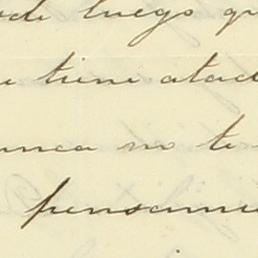 luego
tiene atad
unca no te
pensami